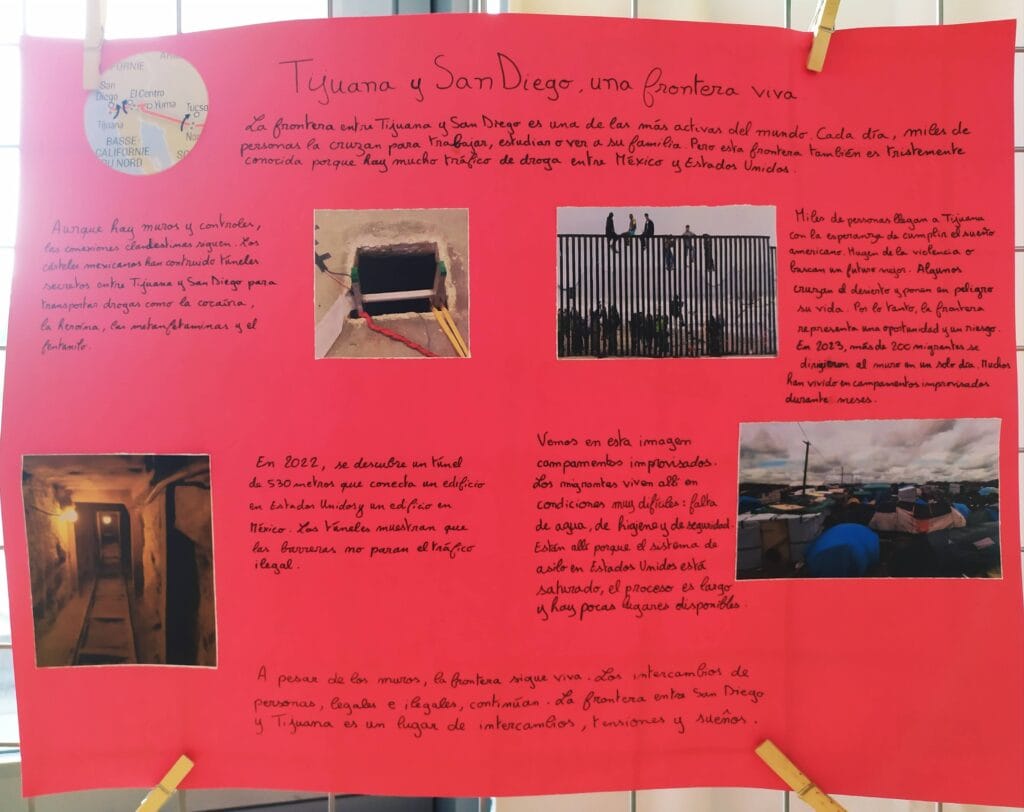 Tijuana y San Diego, una frontera viva
La frontera entre Tijuana y San Diego es una de las más activas del mundo. Cada día, miles de
personas la cruzan para trabajar, estudiar o ver a su familia. Pero esta frontera también es tristemente
conocida porque hay mucho tráfico de droga entre México y Estados Unidos.
San
Diego
El Centro
Yuma
Tijuana
BASSE
CALIFORNIE
DU NORD
Aunque hay muros y controles,
las conexiones clandestinas siguen. Los
cárteles mexicanos han contruido túneles
secretos entre Tijuana y San Diego para
transportar drogas como la cocaína,
la heroína, las metanfetaminas y el
fentanilo.
Miles de personas llegan a Tijuana
con la esperanza de cumplir el sueño
americano. Huyen de la violencia o
buscan un futuro mejor. Algunos
cruzan el desierto y ponen en peligro
su vida. Por lo tanto, la frontera
representa una oportunidad y un riesgo.
En 2023, más de 200 migrantes se
dirigieron al muro en un solo día. Muchos
han vivido en campamentos improvisados
durante meses.
En 2022, se descubre un túnel
de 530 metros que conecta un edificio
en Estados Unidos y un edificio en
México. Los túneles muestran que
las barreras no paran el tráfico
ilegal.
Vemos en esta imagen
campamentos improvisados.
Los migrantes viven allí en
condiciones muy difíciles: falta
de agua, de higiene y de seguridad.
Están allí porque el sistema de
asilo en Estados Unidos está
saturado, el proceso es largo
y hay pocas lugares disponibles.
A pesar de los muros, la frontera sigue viva. Los intercambios de
personas, legales e ilegales, continúan. La frontera entre San Diego
y Tijuana es un lugar de intercambios, tensiones y sueños.